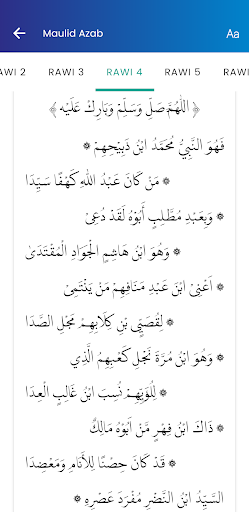 Maulid Azab
Aa
WI 2 RAWI 3 RAWI 4 RAWI 5 RAWI
﴿ اَللّٰهُمَّ صَلِّ وَسَلِّمْ وَبَارِكْ عَلَيْه ﴾
فَهُوَ النَّبِيُّ مُحَمَّدُ ابْنُ ذَبِيْحِهِمْ ۞
۞ مَنْ كَانَ عَبْدُ اللهِ كَهْفًا سَيِّدَا
وَبِعَبْدِ مُطَّلِبٍ أَبُوْهُ لَقَدْ دُعِيْ ۞
۞ وَهُوَ ابْنُ هَاشِمٍ الْجَوَادِ الْمُقْتَدَى
اَعْنِيْ ابْنَ عَبْدِ مَنَافِهِمْ مَنْ يَنْتَمِيْ ۞
۞ لِقُصَيِّ بْنِ كِلَابِهِمْ مُجْلِ الصَّدَا
وَهُوَ ابْنُ مُرَّةَ نَجْلِ كَعْبِهِمُ الَّذِي ۞
۞ لِلُؤَيِّهِمْ نُسِبَ ابْنُ غَالِبٍ الْعِدَا
ذَاكَ ابْنُ فِهْرٍ مَنْ أَبُوْهُ مَالِكٌ ۞
۞ قَدْ كَانَ حِصْنًا لِلْأَنَامِ وَمَعْضِدَا
السَّيِّدُ ابْنُ النَّضْرِ مُفْرَدَ عَصْرِهِ ۞